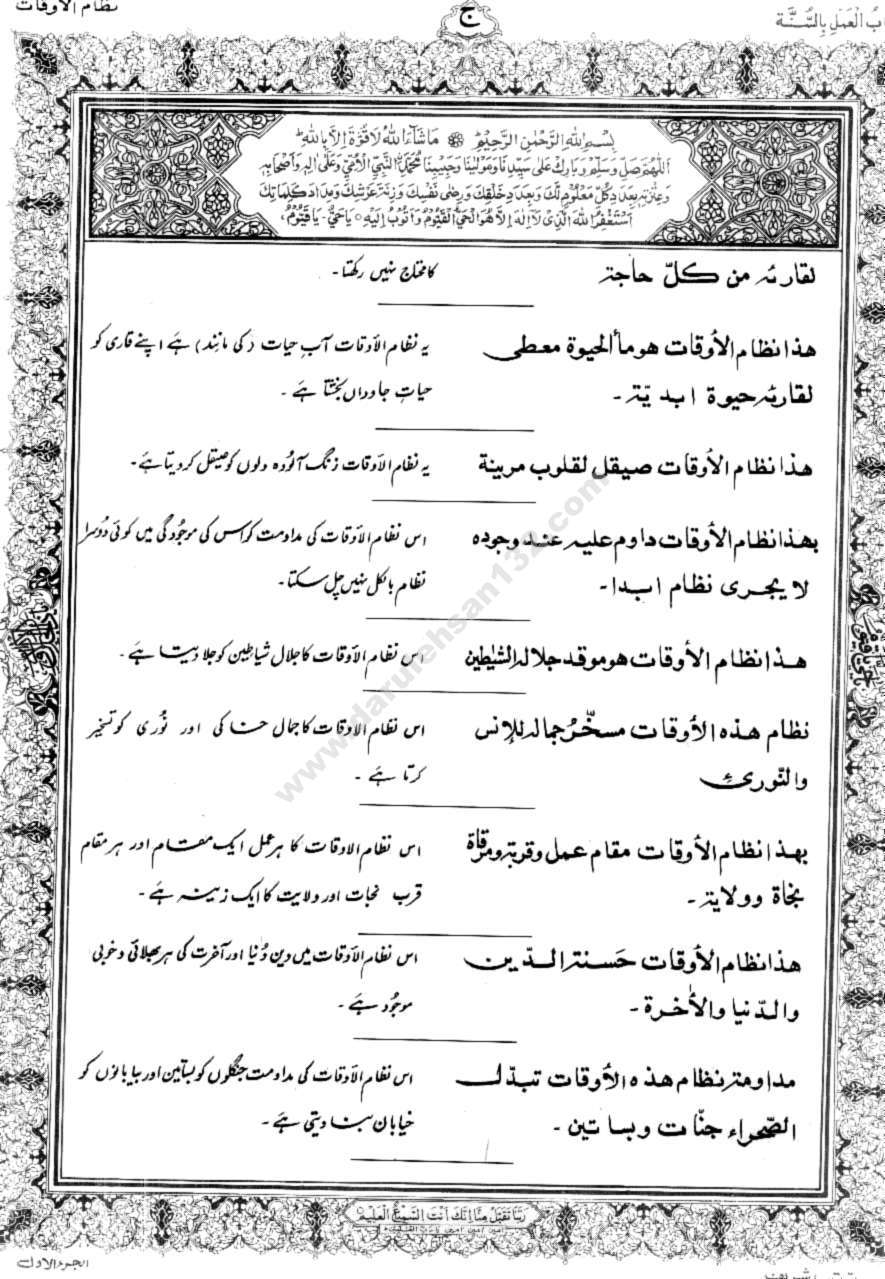 نظام الأوقات
ج
بُ العَمَل بِالسُّنَّة
بِسْمِ اللهِ الرَّحْمٰنِ الرَّحِيْمِ مَا شَآءَ اللهُ لَا قُوَّةَ اِلَّا بِاللهِ
اَللّٰهُمَّ صَلِّ وَسَلِّمْ وَبَارِكْ عَلٰى سَيِّدِنَا وَمَوْلٰينَا وَحَبِيْبِنَا مُحَمَّدِنِ النَّبِيِّ الْاُمِّيِّ وَعَلٰى اٰلِهٖ وَاَصْحَابِهٖ
وَعِتْرَتِهٖ بِعَدَدِ كُلِّ مَعْلُوْمٍ لَّكَ وَبِعَدَدِ خَلْقِكَ وَرِضٰى نَفْسِكَ وَزِنَةِ عَرْشِكَ وَمِدَادِ كَلِمَاتِكَ
اَسْتَغْفِرُ اللهَ الَّذِيْ لَآ اِلٰهَ اِلَّا هُوَ الْحَيُّ الْقَيُّوْمُ وَاَتُوْبُ اِلَيْهِ ٥ يَاحَيُّ يَاقَيُّوْمُ
لقارئه من كلّ حاجة
کا محتاج نہیں رکھتا۔
هذا نظام الأوقات هو مأ الحيوة معطى
یہ نظام الأوقات آبِ حیات (کی مانند) ہے اپنے قاری کو
لقارئه حيوة ابديّة۔
حیاتِ جاوداں بخشتا ہے۔
هذا نظام الأوقات صيقل لقلوب مرينة
یہ نظام الأوقات زنگ آلودہ دلوں کو صیقل کر دیتا ہے۔
بهذا نظام الأوقات داوم عليه عند وجوده
اس نظام الأوقات کی مداومت کو اس کی موجُودگی میں کوئی دُوسرا
لا يجرى نظام ابدا۔
نظام بالکل نہیں چل سکتا۔
هذا نظام الأوقات هو موقد جلاله الشيٰطين
اس نظام الأوقات کا جلال شیاطین کو جلا دیتا ہے۔
نظام هذه الأوقات مسخّرُ جماله للإنس
اس نظام الاوقات کا جمال خاکی اور نُوری کو تسخیر
والنّورىّ
کرتا ہے۔
بهذا نظام الأوقات مقام عمل وقربة ومرقاة
اس نظام الاوقات کا ہر عمل ایک مقام اور ہر مقام
نجاة وولاية۔
قرب نجات اور ولایت کا ایک زینہ ہے۔
هذا نظام الأوقات حَسنة الدّين
اس نظام الأوقات میں دین دُنیا اور آخرت کی ہر بھلائی و خوبی
والدّنيا والأٰخرة۔
موجُود ہے۔
مداومة نظام هذه الأوقات تبدّل
اس نظام الأوقات کی مداومت جنگلوں کو بساتین اور بیابانوں کو
الصّحراء جنّات وبساتين۔
خیابان بنا دیتی ہے۔
رَبَّنَا تَقَبَّلْ مِنَّا اِنَّكَ اَنْتَ السَّمِيْعُ الْعَلِيْمُ
الجزء الاول
www.darulehsan132.com